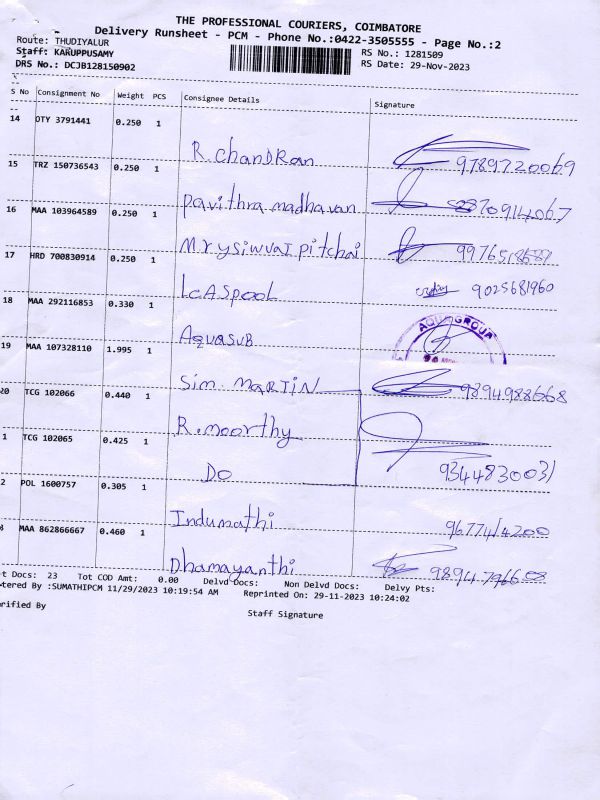 THE PROFESSIONAL COURIERS, COIMBATORE
Delivery Runsheet - PCM - Phone No.:0422-3505555 - Page No.:2
Route: THUDIYALUR RS No.: 1281509
Staff: KARUPPUSAMY RS Date: 29-Nov-2023
DRS No.: DCJB128150902
S No Consignment No Weight PCS Consignee Details Signature
14 OTY 3791441 0.250 1
R. chanDRan 9789720069
15 TRZ 150736543 0.250 1
Pavithra madhavan
16 MAA 103964589 0.250 1
pitchai
17 HRD 700830914 0.250 1
9025681960
18 MAA 292116853 0.330 1
AquasuB AQUAGROUP
19 MAA 107328110 1.995 1
Sim. MARTIN 9894988668
20 TCG 102066 0.440 1
R. moorthy
1 TCG 102065 0.425 1
Do 9344830031
2 POL 1600757 0.305 1
Indumathi 9677414200
MAA 862866667 0.460 1
Dhamayanthi
t Docs: 23 Tot COD Amt: 0.00 Delvd Docs: Non Delvd Docs: Delvy Pts:
tered By :SUMATHIPCM 11/29/2023 10:19:54 AM Reprinted On: 29-11-2023 10:24:02
rified By Staff Signature